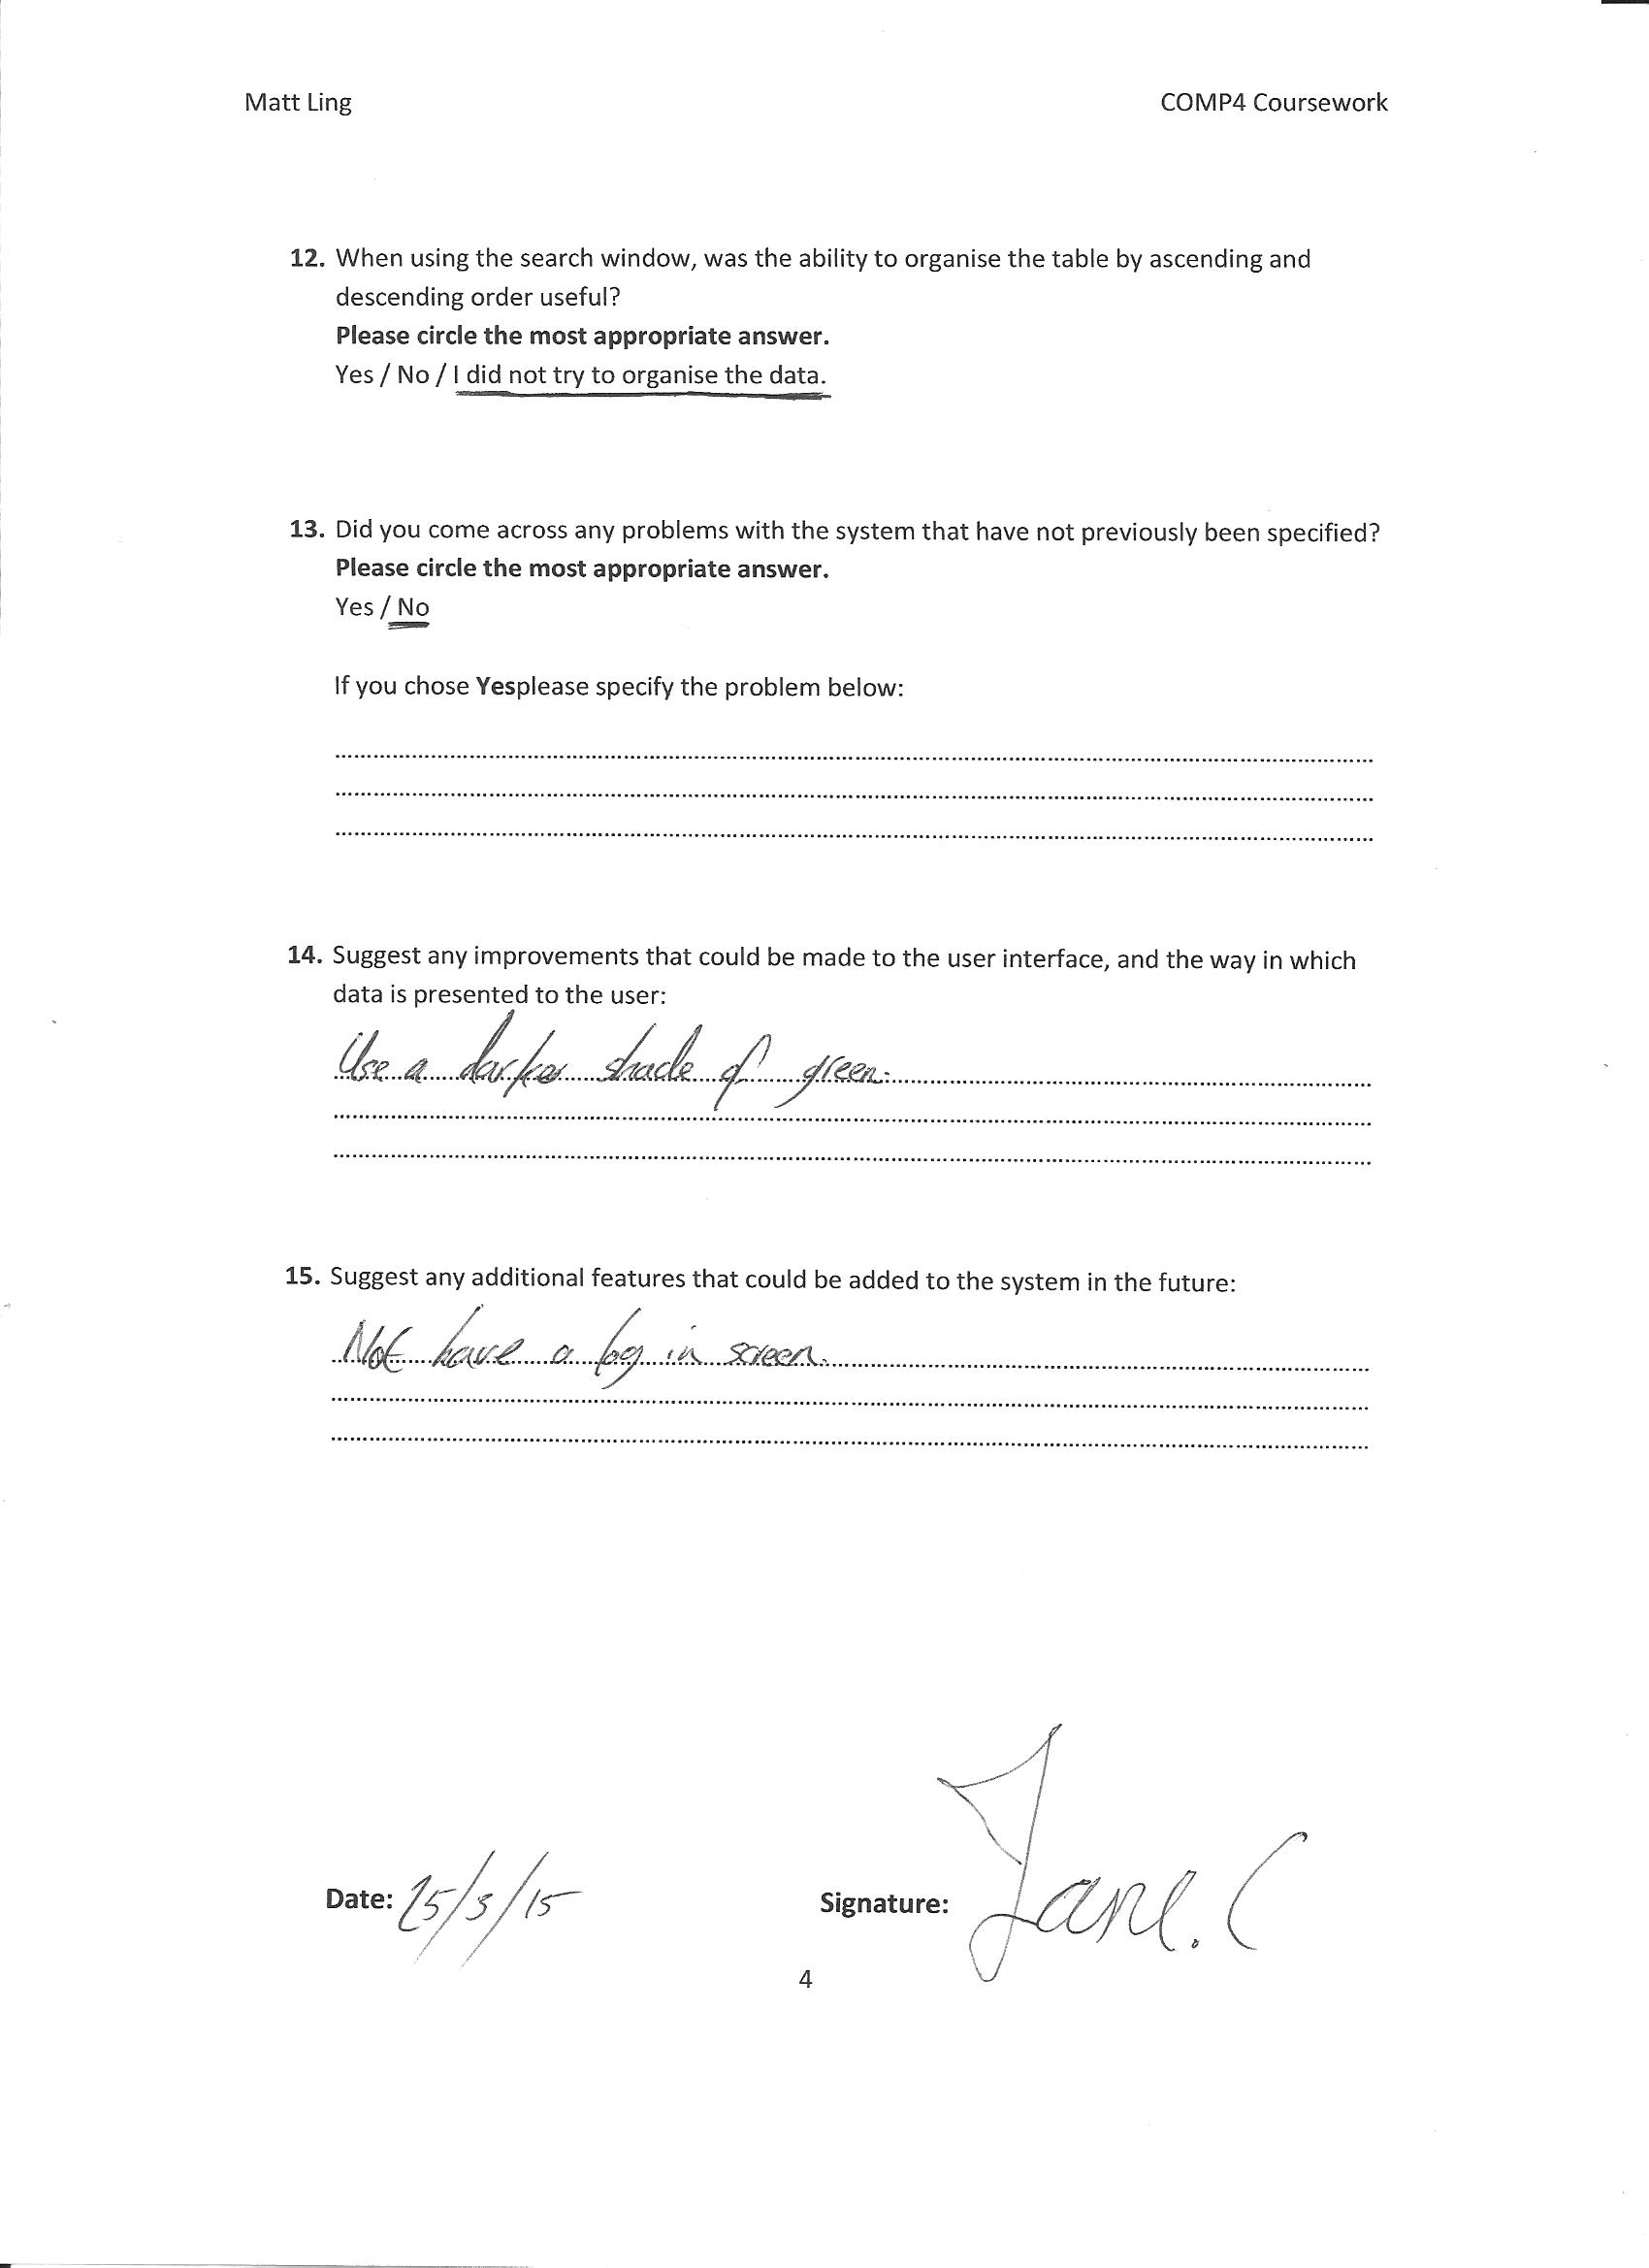 Matt Ling COMP4 Coursework
12. When using the search window, was the ability to organise the table by ascending and
descending order useful?
Please circle the most appropriate answer.
Yes / No / I did not try to organise the data.
13. Did you come across any problems with the system that have not previously been specified?
Please circle the most appropriate answer.
Yes / No
If you chose Yesplease specify the problem below:
14. Suggest any improvements that could be made to the user interface, and the way in which
data is presented to the user:
Use a darker shade of green.
15. Suggest any additional features that could be added to the system in the future:
Not have a log in screen.
Date: 25/3/15 Signature: Jane. C
4